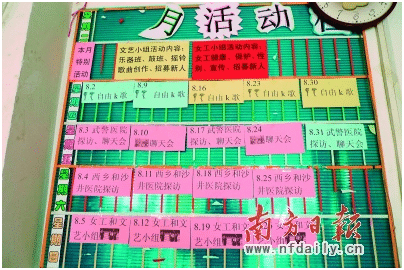 月活动
本月
特别
活动
文艺小组活动内容:
乐器班、鼓班、摇铃
歌曲创作、招募新人
女工小组活动内容:
女工健康、保护、性
别、宣传、招募新人
8.2
自由k歌
8.9
自由k歌
8.16
自由k歌
8.23
自由k歌
8.30
自由k歌
8.3 武警医院
探访、聊天会
8.10
聊天会
8.17 武警医院
探访、聊天会
8.24
聊天会
8.31 武警医院
探访、聊天会
星期六
8.4 西乡和沙
井医院探访
8.11 西乡和沙
井医院探访
8.18 西乡和沙
井医院探访
8.25 西乡和沙
井医院探访
星期日
8.5 女工和文
艺小组
8.12 女工和文
艺小组
8.19 女工和文
艺小组
南方日报
www.nfdaily.cn